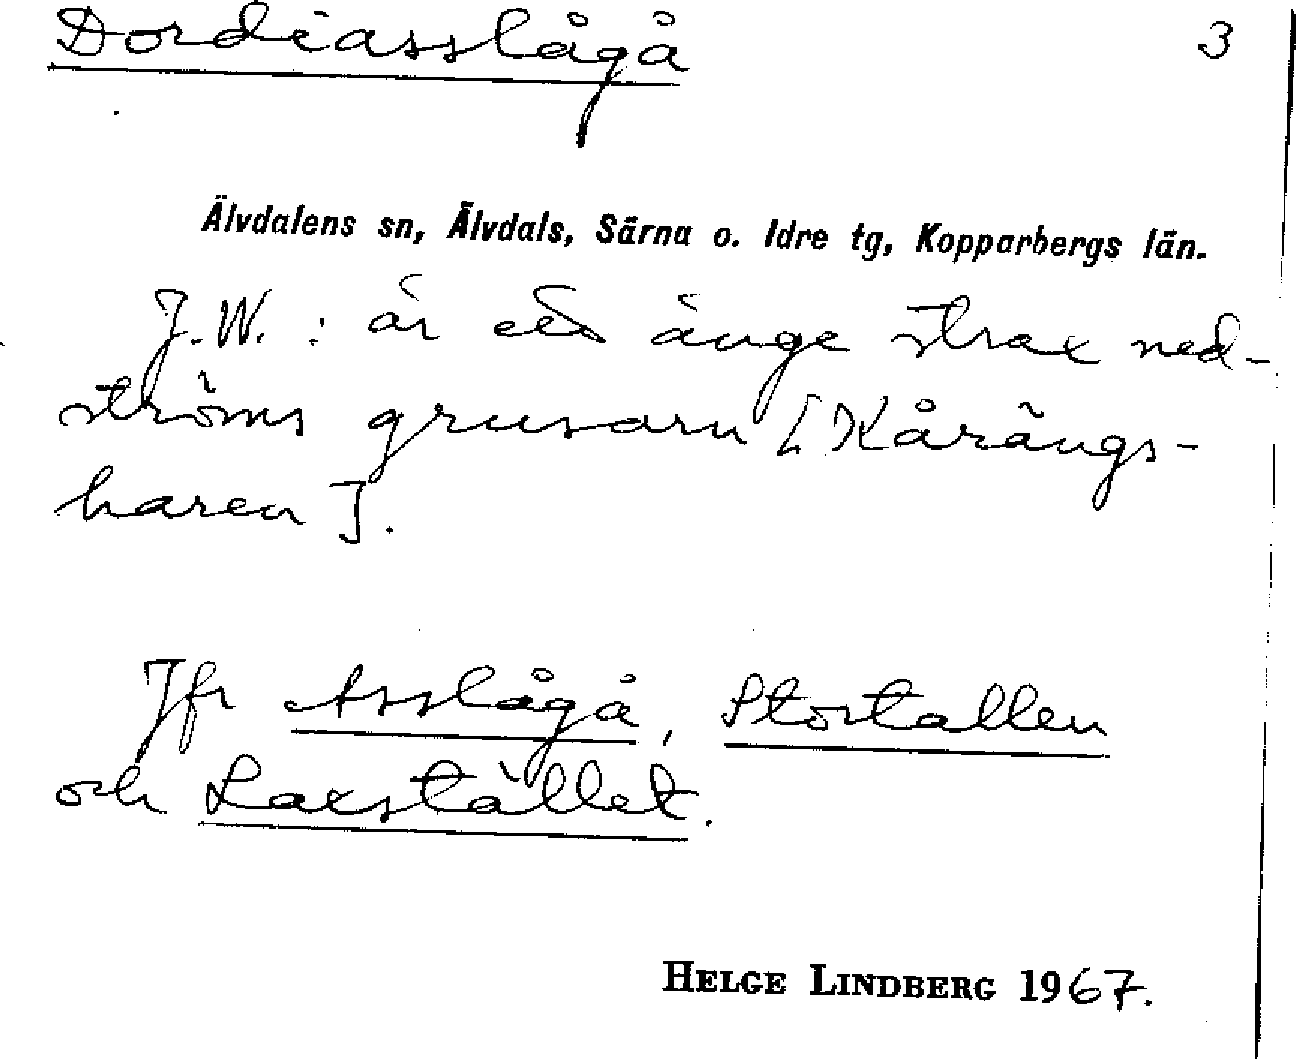 Dordiasslågå 3
Älvdalens sn, Älvdals, Särna o. Idre tg, Kopparbergs län.
J.W. : är ett änge strax ned-
ströms grusarn [Kårängs-
haren].
Jfr Asslågå, Stortallen
och Laxstället.
HELGE LINDBERG 1967.